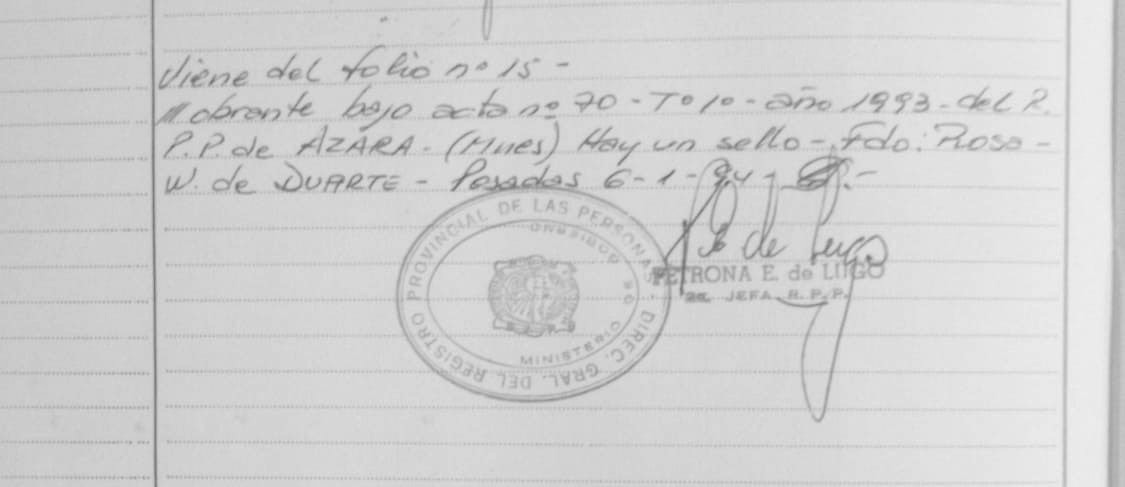 Viene del folio nº 15 -
// obrante bajo acta nº 70 - Tº 10 - año 1993 - del R.
P.P. de AZARA - (Mnes) Hay un sello - Fdo: Rosa -
W. de DUARTE - Posadas 6-1-94 -
E de Lugo
PETRONA E. de LUGO
2a. JEFA R.P.P.
DIREC. GRAL. DEL REGISTRO PROVINCIAL DE LAS PERSONAS
MINISTERIO DE GOBIERNO